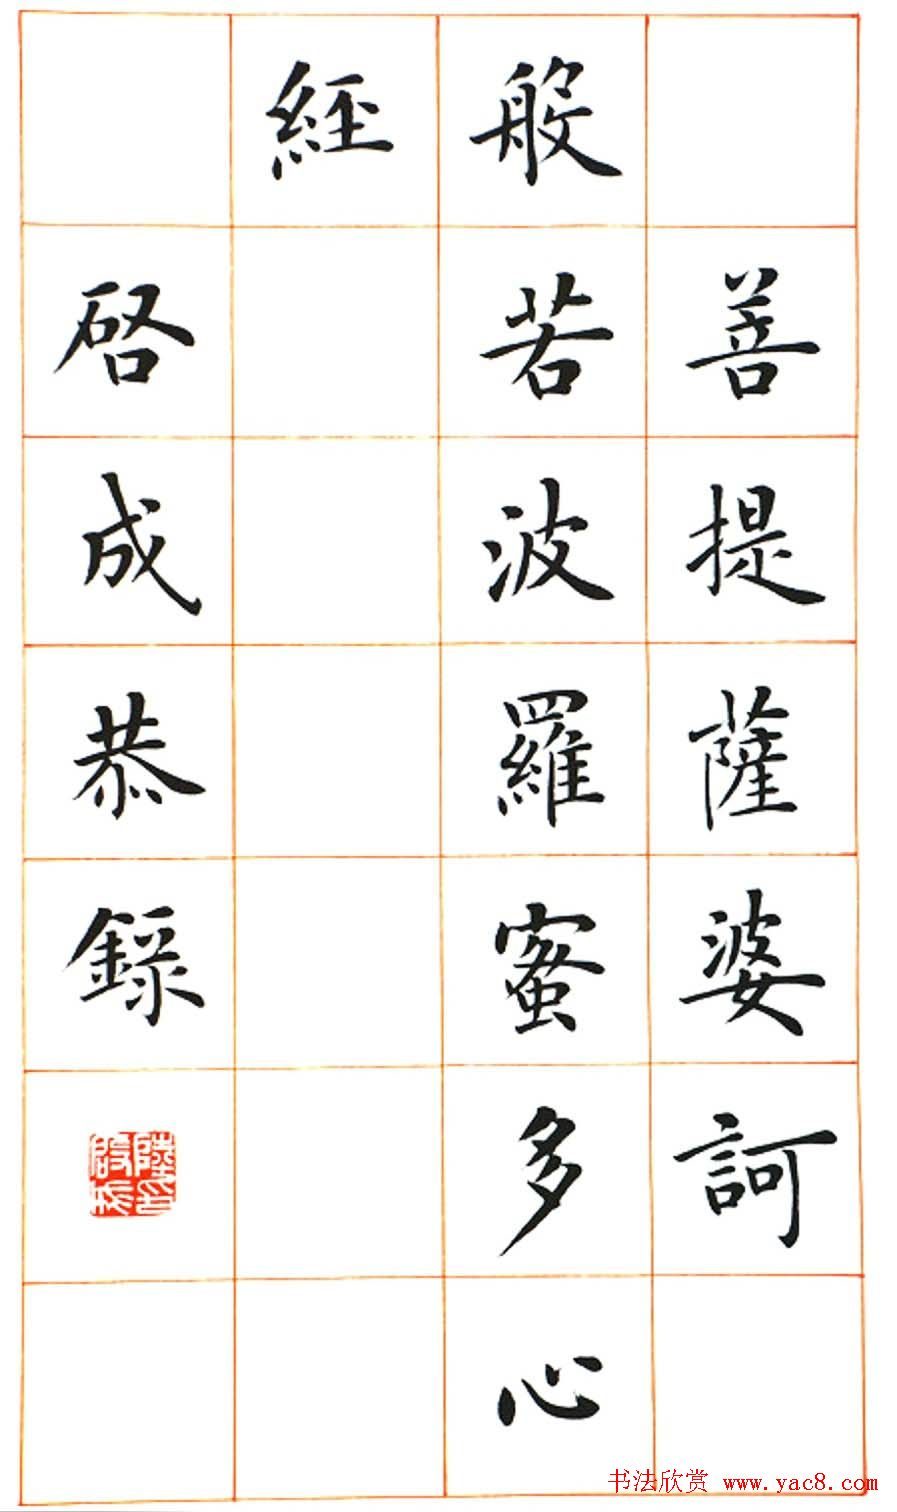 菩提薩婆訶
般若波羅蜜多心
經
啓成恭錄
书法欣赏 www.yac8.com